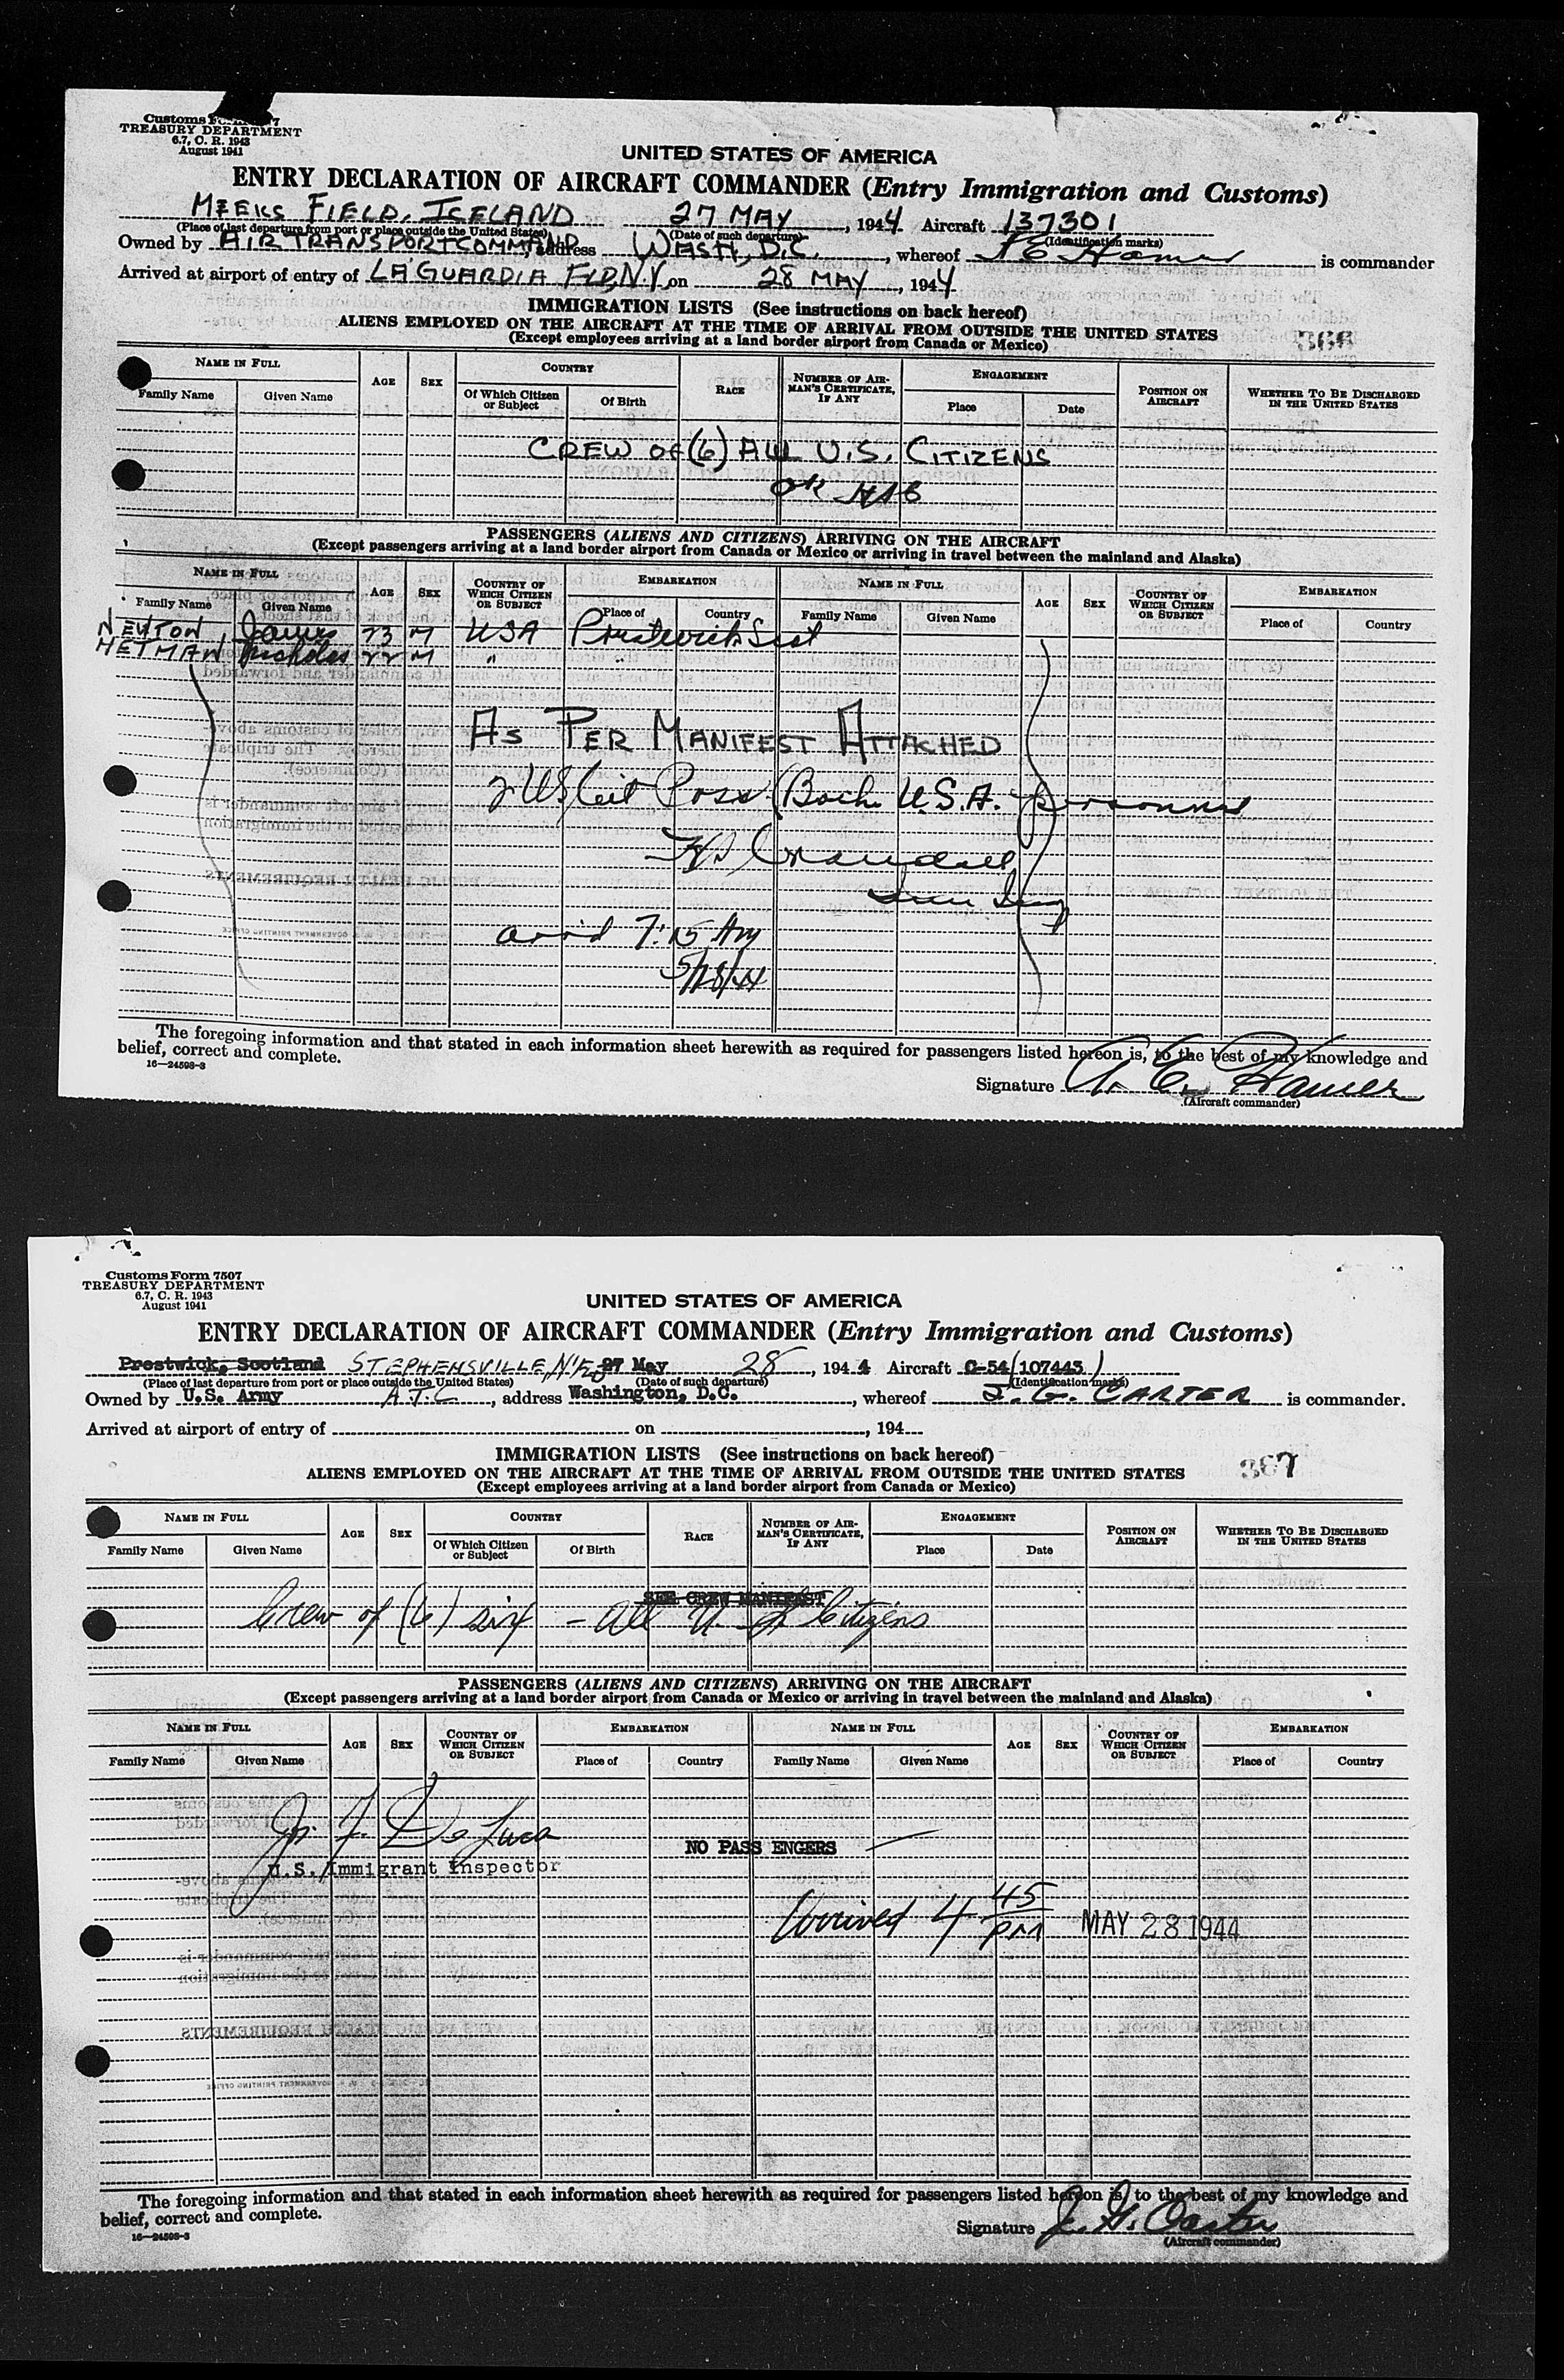 Customs F 7
TREASURY DEPARTMENT
6.7, C. R. 1943
August 1941
UNITED STATES OF AMERICA
ENTRY DECLARATION OF AIRCRAFT COMMANDER (Entry Immigration and Customs)
MEEKS FIELD, ICELAND 27 MAY, 1944 Aircraft 137301
(Place of last departure from port or place outside the United States) (Date of such departure) (Identification marks)
Owned by AIR TRANSPORT COMMAND, address WASH, D.C., whereof A E Hamer is commander
Arrived at airport of entry of LA'GUARDIA FLD, N.Y. on 28 MAY, 1944
IMMIGRATION LISTS (See instructions on back hereof)
ALIENS EMPLOYED ON THE AIRCRAFT AT THE TIME OF ARRIVAL FROM OUTSIDE THE UNITED STATES
(Except employees arriving at a land border airport from Canada or Mexico)
366
NAME IN FULL AGE SEX COUNTRY RACE NUMBER OF AIRMAN'S CERTIFICATE, IF ANY ENGAGEMENT POSITION ON AIRCRAFT WHETHER TO BE DISCHARGED IN THE UNITED STATES
Family Name Given Name Of Which Citizen or Subject Of Birth Place Date
CREW OF (6) ALL U.S. CITIZENS
OK HSB
PASSENGERS (ALIENS AND CITIZENS) ARRIVING ON THE AIRCRAFT
(Except passengers arriving at a land border airport from Canada or Mexico or arriving in travel between the mainland and Alaska)
NAME IN FULL AGE SEX COUNTRY OF WHICH CITIZEN OR SUBJECT EMBARKATION NAME IN FULL AGE SEX COUNTRY OF WHICH CITIZEN OR SUBJECT EMBARKATION
Family Name Given Name Place of Country Family Name Given Name Place of Country
NEWTON James 23 M USA Prestwick Scot
HETMAN Nicholas 22 M " "
AS PER MANIFEST ATTACHED
2 US Cit Pass (Both U.S.A. personnel
H S Crandall
Imm Insp
arrid 7:15 Am
5/28/44
The foregoing information and that stated in each information sheet herewith as required for passengers listed hereon is, to the best of my knowledge and
belief, correct and complete.
16—24598-3
Signature A. E. Hamer
(Aircraft commander)
Customs Form 7507
TREASURY DEPARTMENT
6.7, C. R. 1943
August 1941
UNITED STATES OF AMERICA
ENTRY DECLARATION OF AIRCRAFT COMMANDER (Entry Immigration and Customs)
Prestwick, Scotland STEPHENSVILLE, N'FLD 27 May 28, 1944 Aircraft C-54 (107443)
(Place of last departure from port or place outside the United States) (Date of such departure) (Identification marks)
Owned by U.S. Army A.T.C., address Washington, D.C., whereof J. G. CARTER is commander.
Arrived at airport of entry of on , 194
IMMIGRATION LISTS (See instructions on back hereof)
ALIENS EMPLOYED ON THE AIRCRAFT AT THE TIME OF ARRIVAL FROM OUTSIDE THE UNITED STATES
(Except employees arriving at a land border airport from Canada or Mexico)
367
NAME IN FULL AGE SEX COUNTRY RACE NUMBER OF AIRMAN'S CERTIFICATE, IF ANY ENGAGEMENT POSITION ON AIRCRAFT WHETHER TO BE DISCHARGED IN THE UNITED STATES
Family Name Given Name Of Which Citizen or Subject Of Birth Place Date
SEE CREW MANIFEST
Crew of (6) six - all U. S. Citizens
PASSENGERS (ALIENS AND CITIZENS) ARRIVING ON THE AIRCRAFT
(Except passengers arriving at a land border airport from Canada or Mexico or arriving in travel between the mainland and Alaska)
NAME IN FULL AGE SEX COUNTRY OF WHICH CITIZEN OR SUBJECT EMBARKATION NAME IN FULL AGE SEX COUNTRY OF WHICH CITIZEN OR SUBJECT EMBARKATION
Family Name Given Name Place of Country Family Name Given Name Place of Country
De Luca
U.S. Immigrant Inspector
NO PASS ENGERS
Arrived 4 45 PM MAY 28 1944
The foregoing information and that stated in each information sheet herewith as required for passengers listed hereon is, to the best of my knowledge and
belief, correct and complete.
16—24598-3
Signature J. G. Carter
(Aircraft commander)